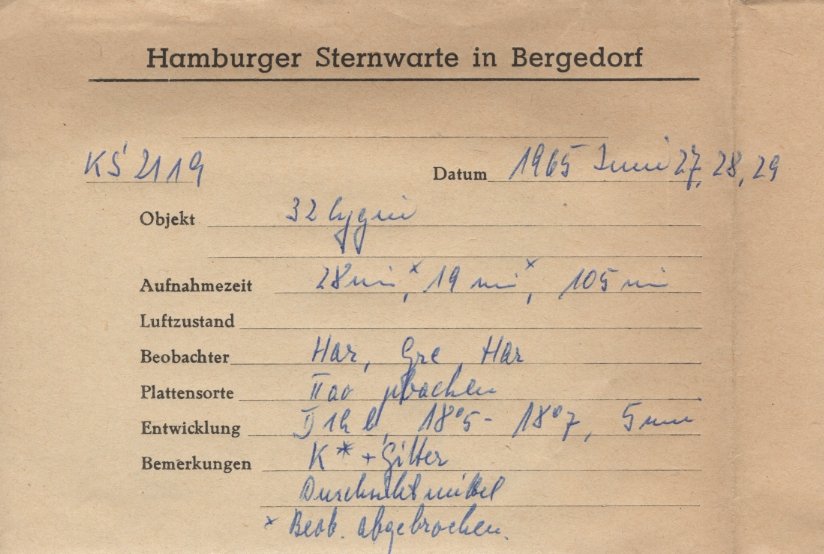 Hamburger Sternwarte in Bergedorf
KS 2119 Datum 1965 Juni 27, 28, 29
Objekt 32 Cygni
Aufnahmezeit 28 min x, 19 min x, 105 min
Luftzustand
Beobachter Har, Gre, Har
Plattensorte IIaO gebacken
Entwicklung 18°5 - 18°7, 5 min
Bemerkungen K* + Gitter
Durchsicht mittel
x Beob. abgebrochen.